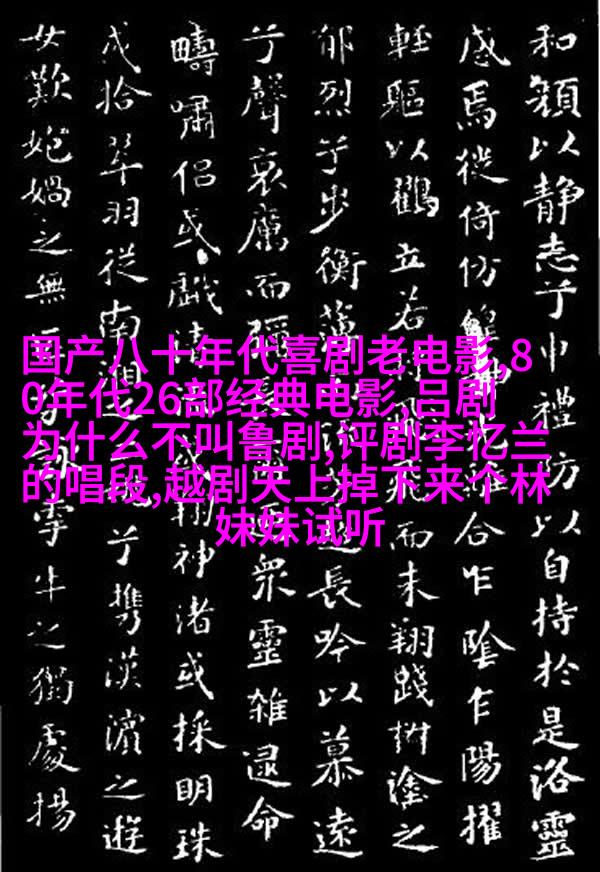 和顏以静志兮申禮防以自持於是洛靈
感焉徙倚仿合乍陰乍陽擢
輕軀以鶴立若而未翔踐椒塗之
郁烈兮步衡薄長吟以慕遠
兮聲哀厲而彌眾靈雜遝命
疇嘯侶或戲清神渚或採明珠
或拾翠羽從南湘之兮攜漢濱之遊
女歎匏媧之無牽牛之獨處揚
国产八十年代喜剧老电影,8
0年代26部经典电影,吕剧
为什么不叫鲁剧,评剧李忆兰
的唱段,越剧天上掉下来个林
妹妹试听